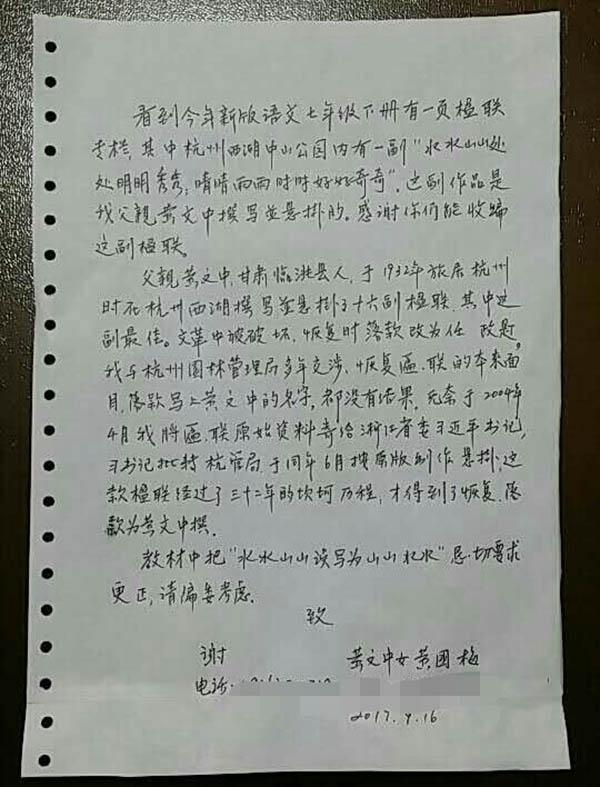 看到今年新版语文七年级下册有一页楹联
专栏,其中杭州西湖中山公园内有一副“水水山山处
处明明秀秀,晴晴雨雨时时好好奇奇”,这副作品是
我父親黄文中撰写並悬掛的。感谢你们能收编
这副楹联。
父親黄文中,甘肃临洮县人,于1932年旅居杭州
时在杭州西湖撰写並悬掛了十六副楹联,其中这
副最佳。文革中被破坏,恢复时落款改为任政是。
我与杭州园林管理局多年交涉,恢复匾、联的本来面
目,落款写上黄文中的名字,都没有结果,无奈于2004年
4月我将匾、联原始资料寄给浙江省委习近平书记,
习书记批转杭管局,于同年6月按原版制作悬掛,这
款楹联经过了三十二年的坎坷历程,才得到了恢复,落
款为黄文中撰。
教材中把“水水山山误写为山山水水”恳切要求
更正,请编委考虑。
致
谢
黄文中女黄国梅
电话:
2017.4.16